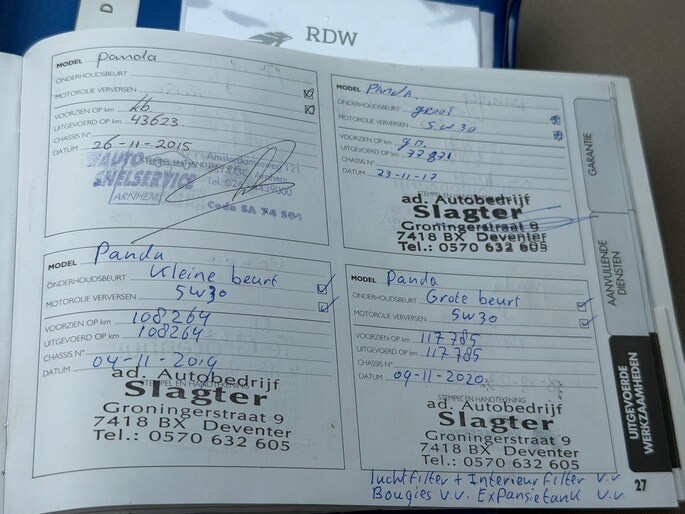 D
RDW
MODEL Panda
ONDERHOUDSBEURT
MOTOROLIE VERVERSEN
VOORZIEN OP km kb
UITGEVOERD OP km 43623
CHASSIS N°
DATUM 26-11-2015
AUTO
SNELSERVICE
ARNHEM
Amsterdamseweg 121
Arnhem
Code SA 74 S01
MODEL PANDA
ONDERHOUDSBEURT groot
MOTOROLIE VERVERSEN 5W30
VOORZIEN OP km
UITGEVOERD OP km 77.871
CHASSIS N°
DATUM 23-11-17
STEMPEL EN HANDTEKENING
ad. Autobedrijf
Slagter
Groningerstraat 9
7418 BX Deventer
Tel.: 0570 632 605
MODEL Panda
ONDERHOUDSBEURT Kleine beurt
MOTOROLIE VERVERSEN 5W30
VOORZIEN OP km 108264
UITGEVOERD OP km 108264
CHASSIS N°
DATUM 04-11-2019
ad. Autobedrijf
STEMPEL EN HANDTEKENING
Slagter
Groningerstraat 9
7418 BX Deventer
Tel.: 0570 632 605
MODEL Panda
ONDERHOUDSBEURT Grote beurt
MOTOROLIE VERVERSEN 5W30
VOORZIEN OP km 117785
UITGEVOERD OP km 117785
CHASSIS N°
DATUM 09-11-2020.
STEMPEL EN HANDTEKENING
ad. Autobedrijf
Slagter
Groningerstraat 9
7418 BX Deventer
Tel.: 0570 632 605
luchtfilter + Interieurfilter v.v
Bougies v.v. Expansietank v.v
GARANTIE
AANVULLENDE
DIENSTEN
UITGEVOERDE
WERKZAAMHEDEN
27